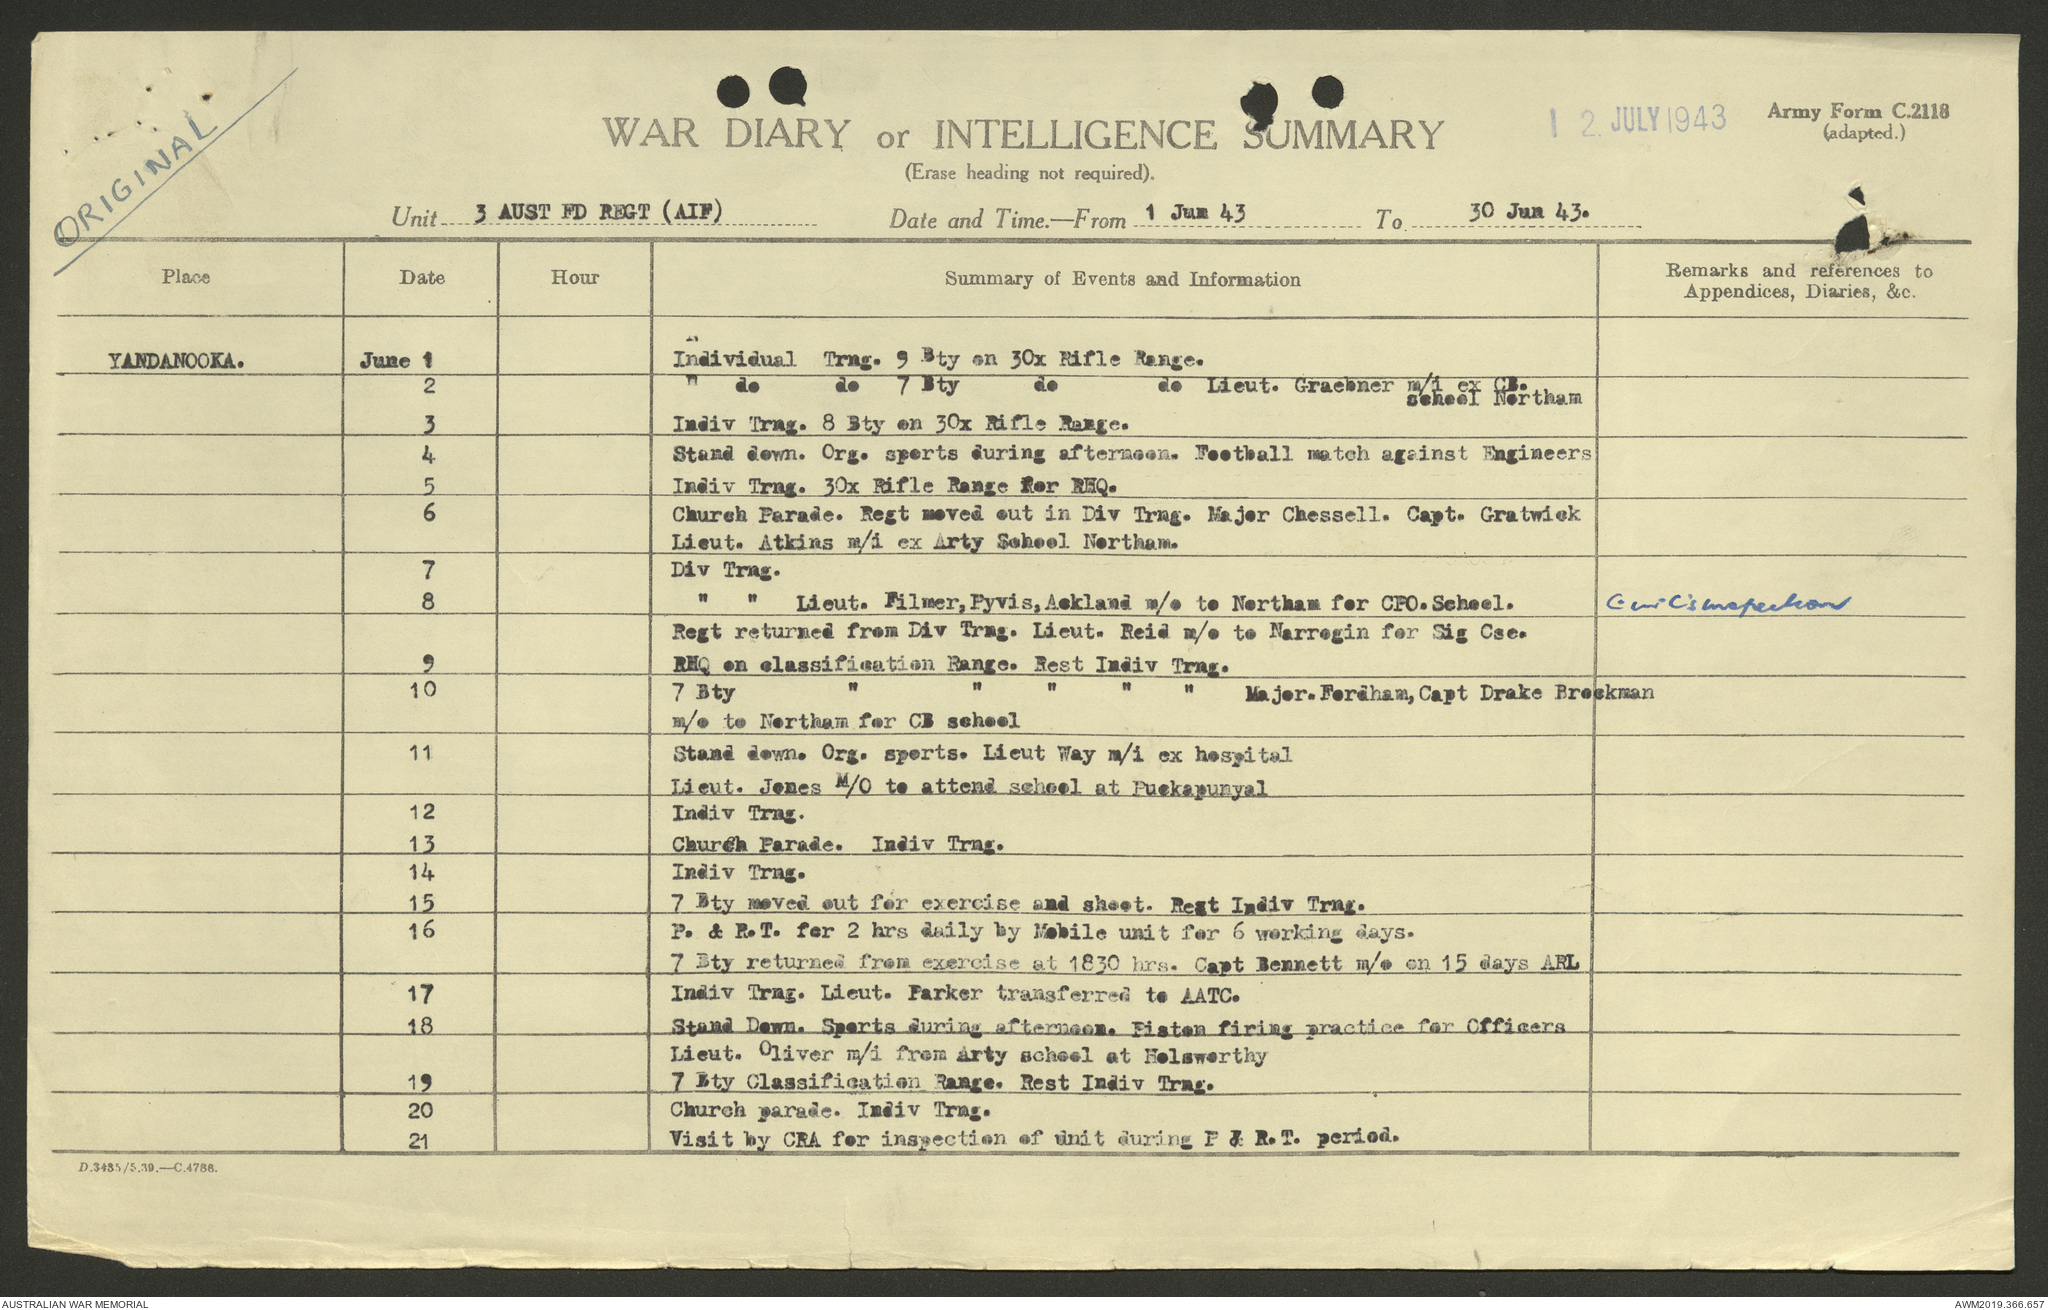 ORIGINAL
12 JULY 1943
Army Form C.2118
(adapted.)
WAR DIARY or INTELLIGENCE SUMMARY
(Erase heading not required).
Unit 3 AUST FD REGT (AIF) Date and Time.—From 1 Jun 43 To 30 Jun 43.
Place Date Hour Summary of Events and Information Remarks and references to
Appendices, Diaries, &c.
YANDANOOKA. June 1 Individual Trng. 9 Bty on 30x Rifle Range.
2 " do do 7 Bty do do Lieut. Graebner m/i ex CB.
school Northam
3 Indiv Trng. 8 Bty on 30x Rifle Range.
4 Stand down. Org. sports during afternoon. Football match against Engineers
5 Indiv Trng. 30x Rifle Range for RHQ.
6 Church Parade. Regt moved out in Div Trng. Major Chessell. Capt. Gratwick
Lieut. Atkins m/i ex Arty School Northam.
7 Div Trng.
8 " " Lieut. Filmer, Pyvis, Ackland m/o to Northam for CPO. School. G in C's inspection
Regt returned from Div Trng. Lieut. Reid m/o to Narrogin for Sig Cse.
9 RHQ on classification Range. Rest Indiv Trng.
10 7 Bty " " " " " Major. Fordham, Capt Drake Brockman
m/o to Northam for CB school
11 Stand down. Org. sports. Lieut Way m/i ex hospital
Lieut. Jones M/O to attend school at Puckapunyal
12 Indiv Trng.
13 Church Parade. Indiv Trng.
14 Indiv Trng.
15 7 Bty moved out for exercise and shoot. Rest Indiv Trng.
16 P. & R.T. for 2 hrs daily by Mobile unit for 6 working days.
7 Bty returned from exercise at 1830 hrs. Capt Bennett m/o on 15 days ARL
17 Indiv Trng. Lieut. Parker transferred to AATC.
18 Stand Down. Sports during afternoon. Piston firing practice for Officers
Lieut. Oliver m/i from Arty school at Holsworthy
19 7 Bty Classification Range. Rest Indiv Trng.
20 Church parade. Indiv Trng.
21 Visit by CRA for inspection of unit during P & R.T. period.
D.3485/5.39.—C.4786.
AUSTRALIAN WAR MEMORIAL
AWM2019.366.657